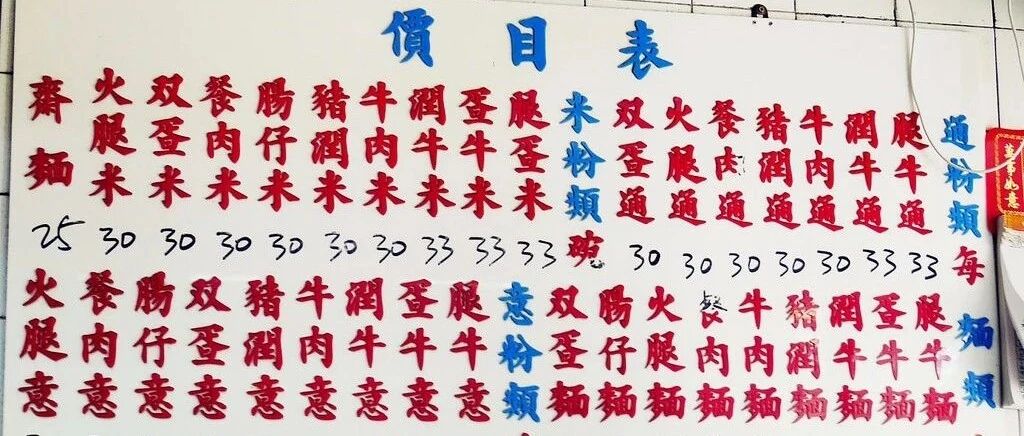 價目表
通粉類
腿牛通
潤牛通
牛肉通
豬潤通
餐肉通
火腿通
双蛋通
米粉類
腿蛋米
蛋牛米
潤牛米
牛肉米
豬潤米
腸仔米
餐肉米
双蛋米
火腿米
齋麵
25 30 30 30 30 30 30 33 33 33 碗 30 30 30 30 30 33 33 每
麵類
腿牛麵
蛋牛麵
潤牛麵
豬潤麵
牛肉麵
餐肉麵
火腿麵
腸仔麵
双蛋麵
意粉類
腿牛意
蛋牛意
潤牛意
牛肉意
豬潤意
双蛋意
腸仔意
餐肉意
火腿意
萬事如意